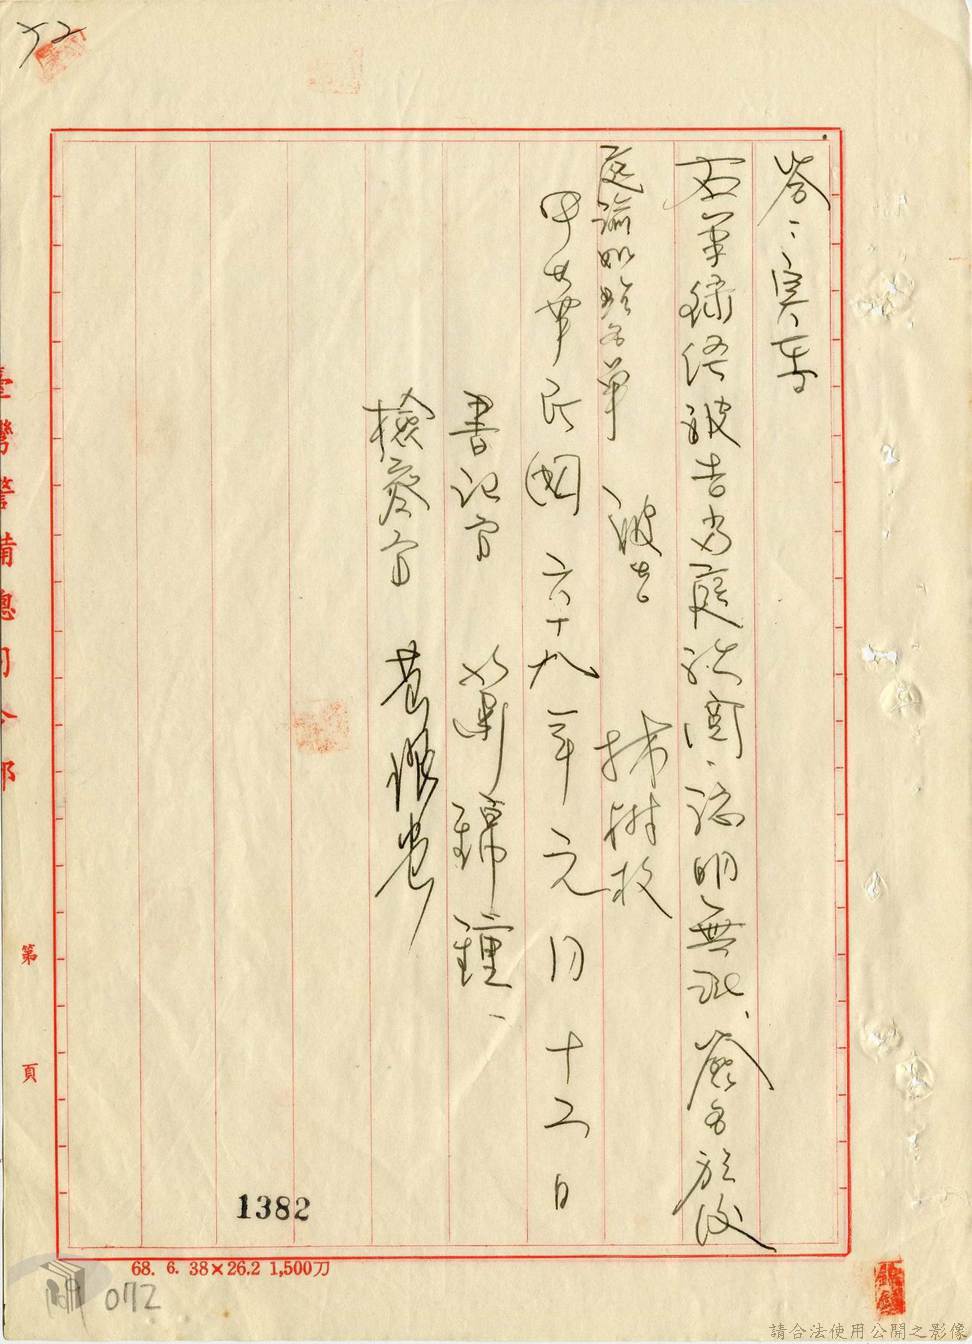 答:實在
右筆錄經被告當庭閱、認明無訛、簽名於後
庭諭如點名單 被告 林樹枝
中華民國六十九年元月十日
書記官 錦鐘
檢察官
臺灣警備總司令部
第 頁
1382
68. 6. 38×26.2 1,500刀
072
請合法使用公開之影像